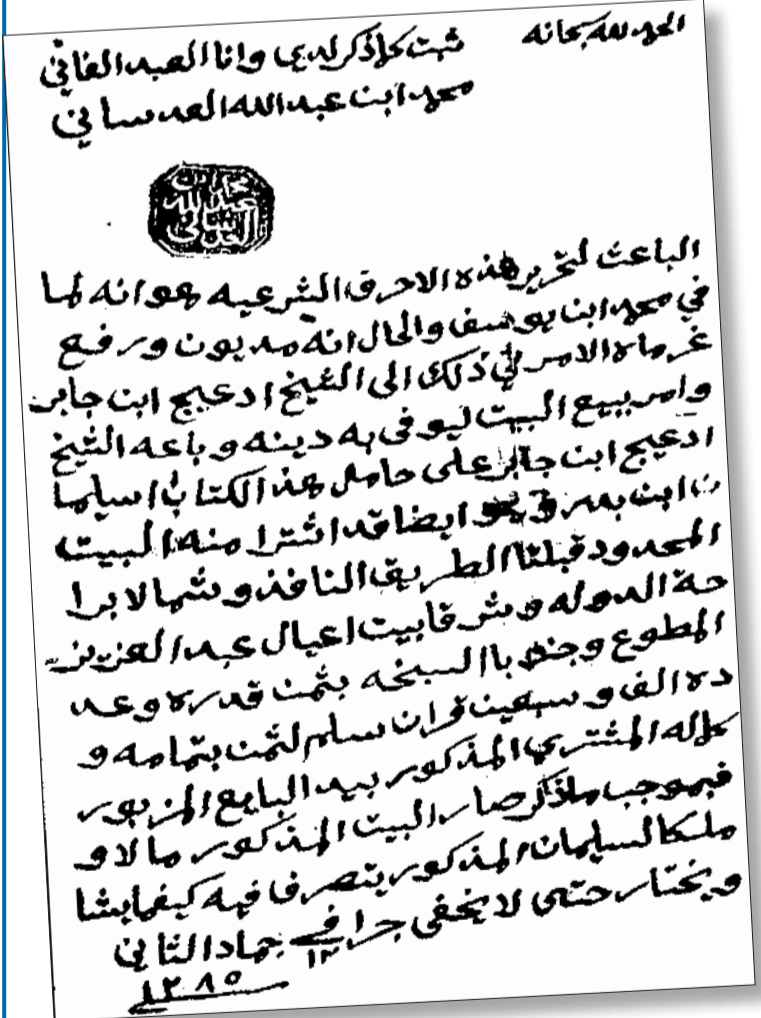 الحمد لله سبحانه
ثبت كلما ذكر لدي وانا العبد الفاني
محمد ابن عبد الله العدساني
محمد ابن
عبد الله
العدساني
الباعث لتحرير هذه الاحرف الشرعيه هو انه لما
في محمد ابن يوسف والحال انه مديون ورفع
غرماه الامر في ذلك الى الشيخ ادعيج ابن جابر
وامر ببيع البيت ليوفى به دينه وباعه الشيخ
ادعيج ابن جابر على حامل هذا الكتاب اسليما
ن ابن بدر وهو ايضا قد اشترا منه البيت
المحدود قبلتا الطريق النافذ وشمالا برا
حة الدوله وشرقا بيت اعيال عبد العزيز
المطوع وجنوبا السبخه بثمن قدره وعد
ده الف وسبعين قران سلم لثمن بتمامه و
كماله المشتري المذكور بيد البايع المزبور
فبموجب ما ذكر صار البيت المذكور مالا و
ملكا لسليمان المذكور يتصرف فيه كيفما يشا
ويختار حتى لا يخفى جرا في ١٢ جماد الثاني
١٢٨٥